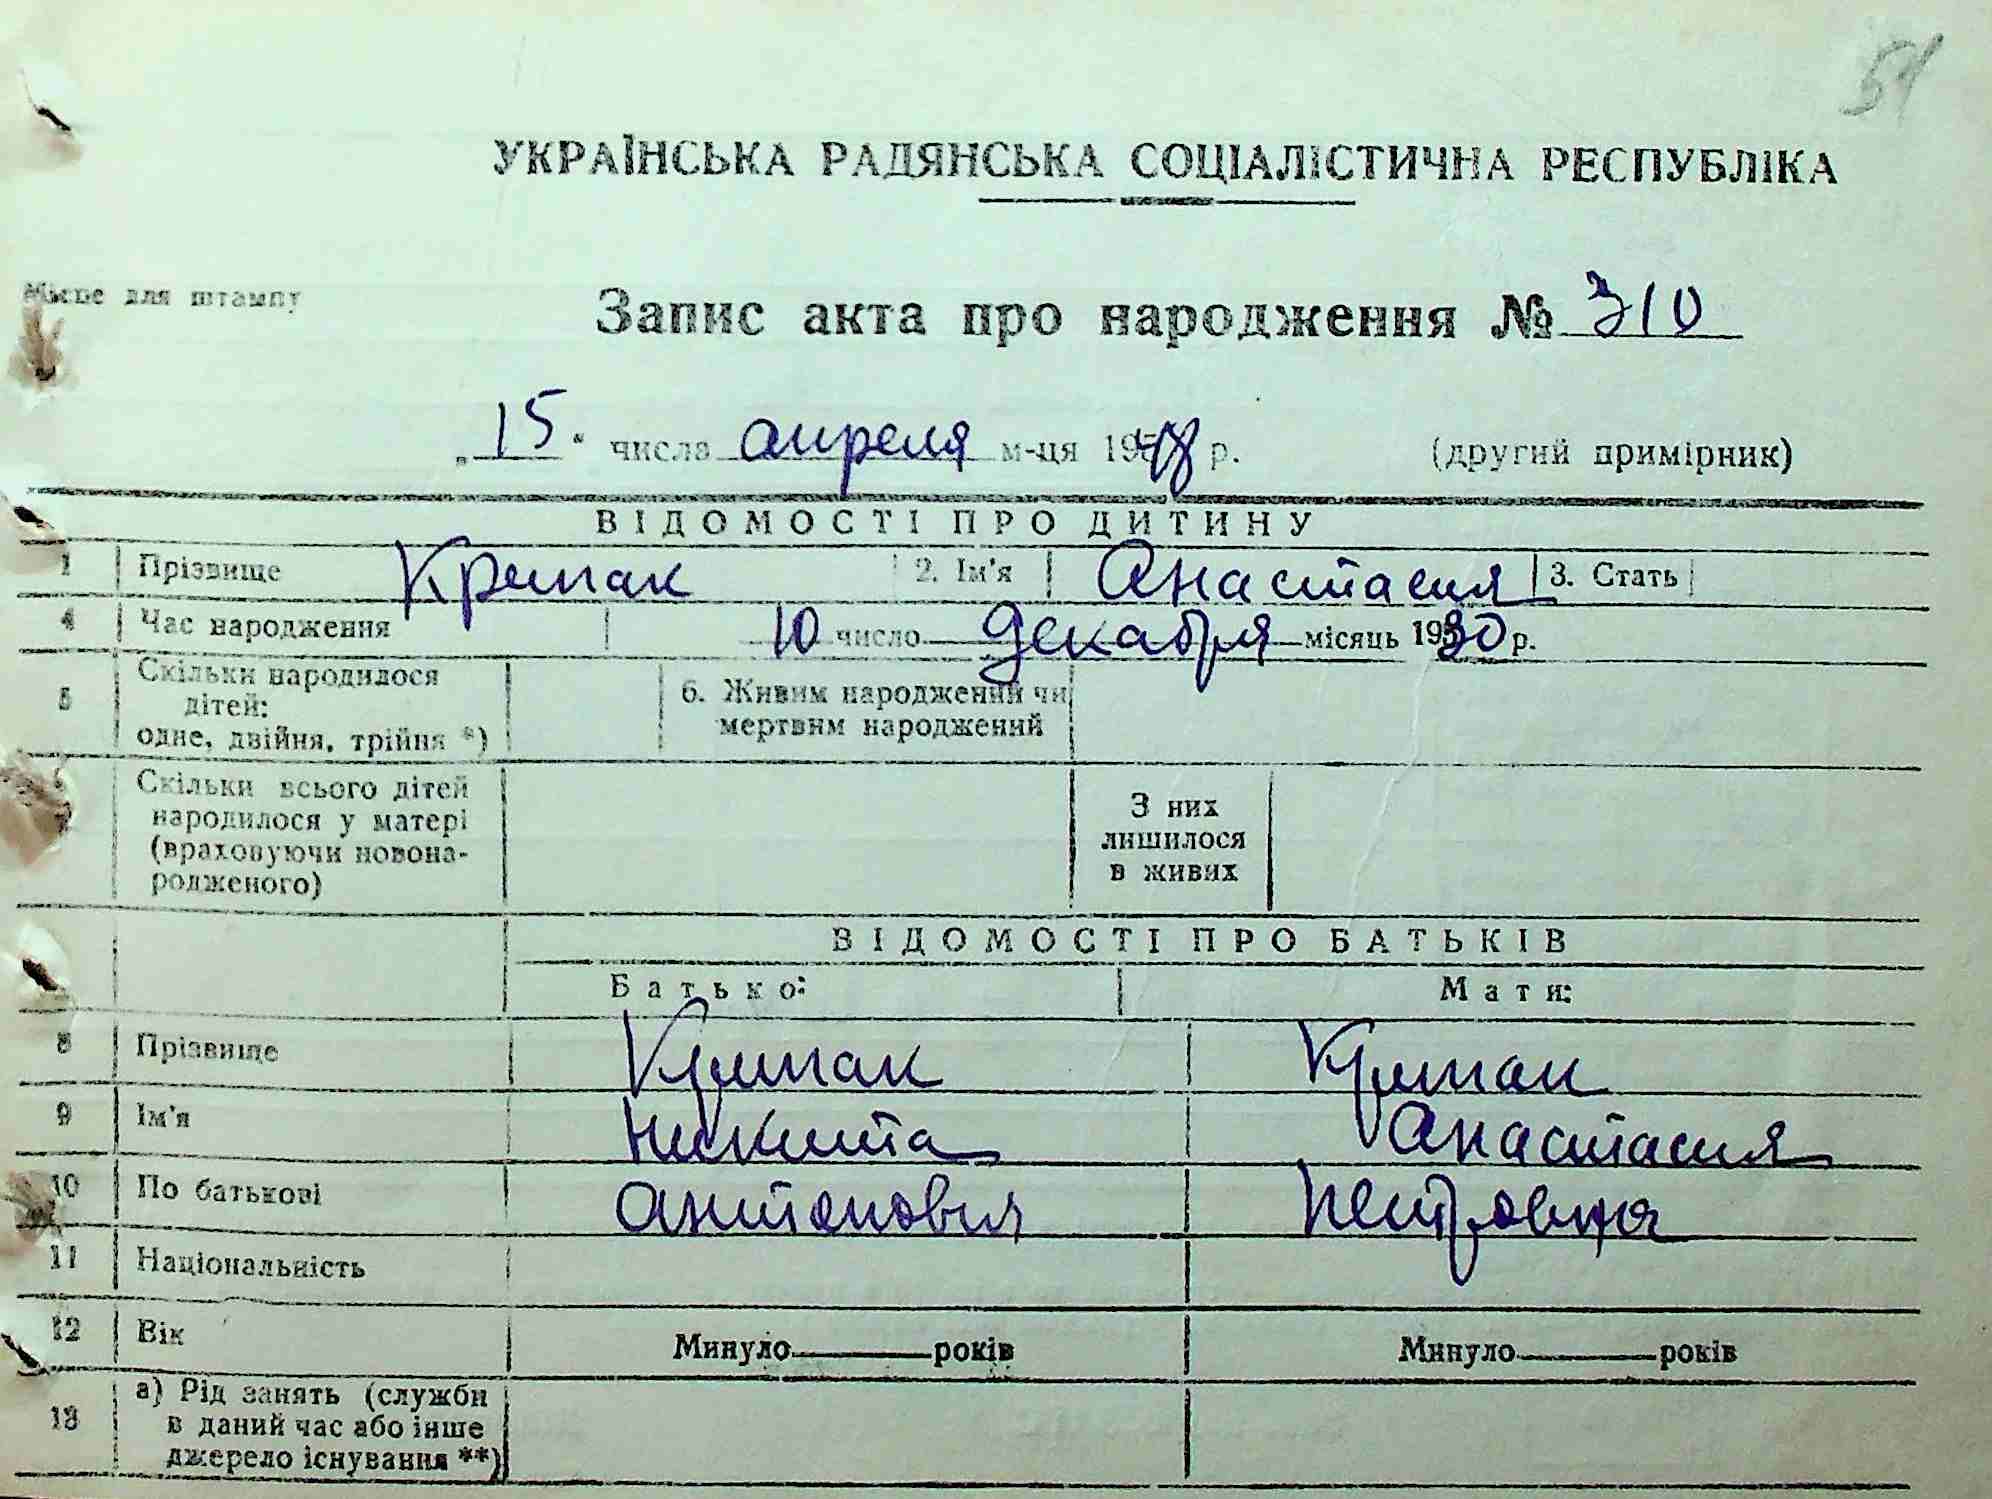 51
УКРАЇНСЬКА РАДЯНСЬКА СОЦІАЛІСТИЧНА РЕСПУБЛІКА
Місце для штампу
Запис акта про народження № 310
„15“ числа апреля м-ця 1948 р. (другий примірник)
ВІДОМОСТІ ПРО ДИТИНУ
1 Прізвище Крипак 2. Ім'я Анастасия 3. Стать
4 Час народження 10 число декабря місяць 1930 р.
5 Скільки народилося дітей: одне, двійня, трійня *) 6. Живим народжений чи мертвим народжений
7 Скільки всього дітей народилося у матері (враховуючи новонародженого) З них лишилося в живих
ВІДОМОСТІ ПРО БАТЬКІВ
Батько: Мати:
8 Прізвище Крипак Крипак
9 Ім'я Никита Анастасия
10 По батькові Антонович Петровна
11 Національність
12 Вік Минуло років Минуло років
13 а) Рід занять (служби в даний час або інше джерело існування **)